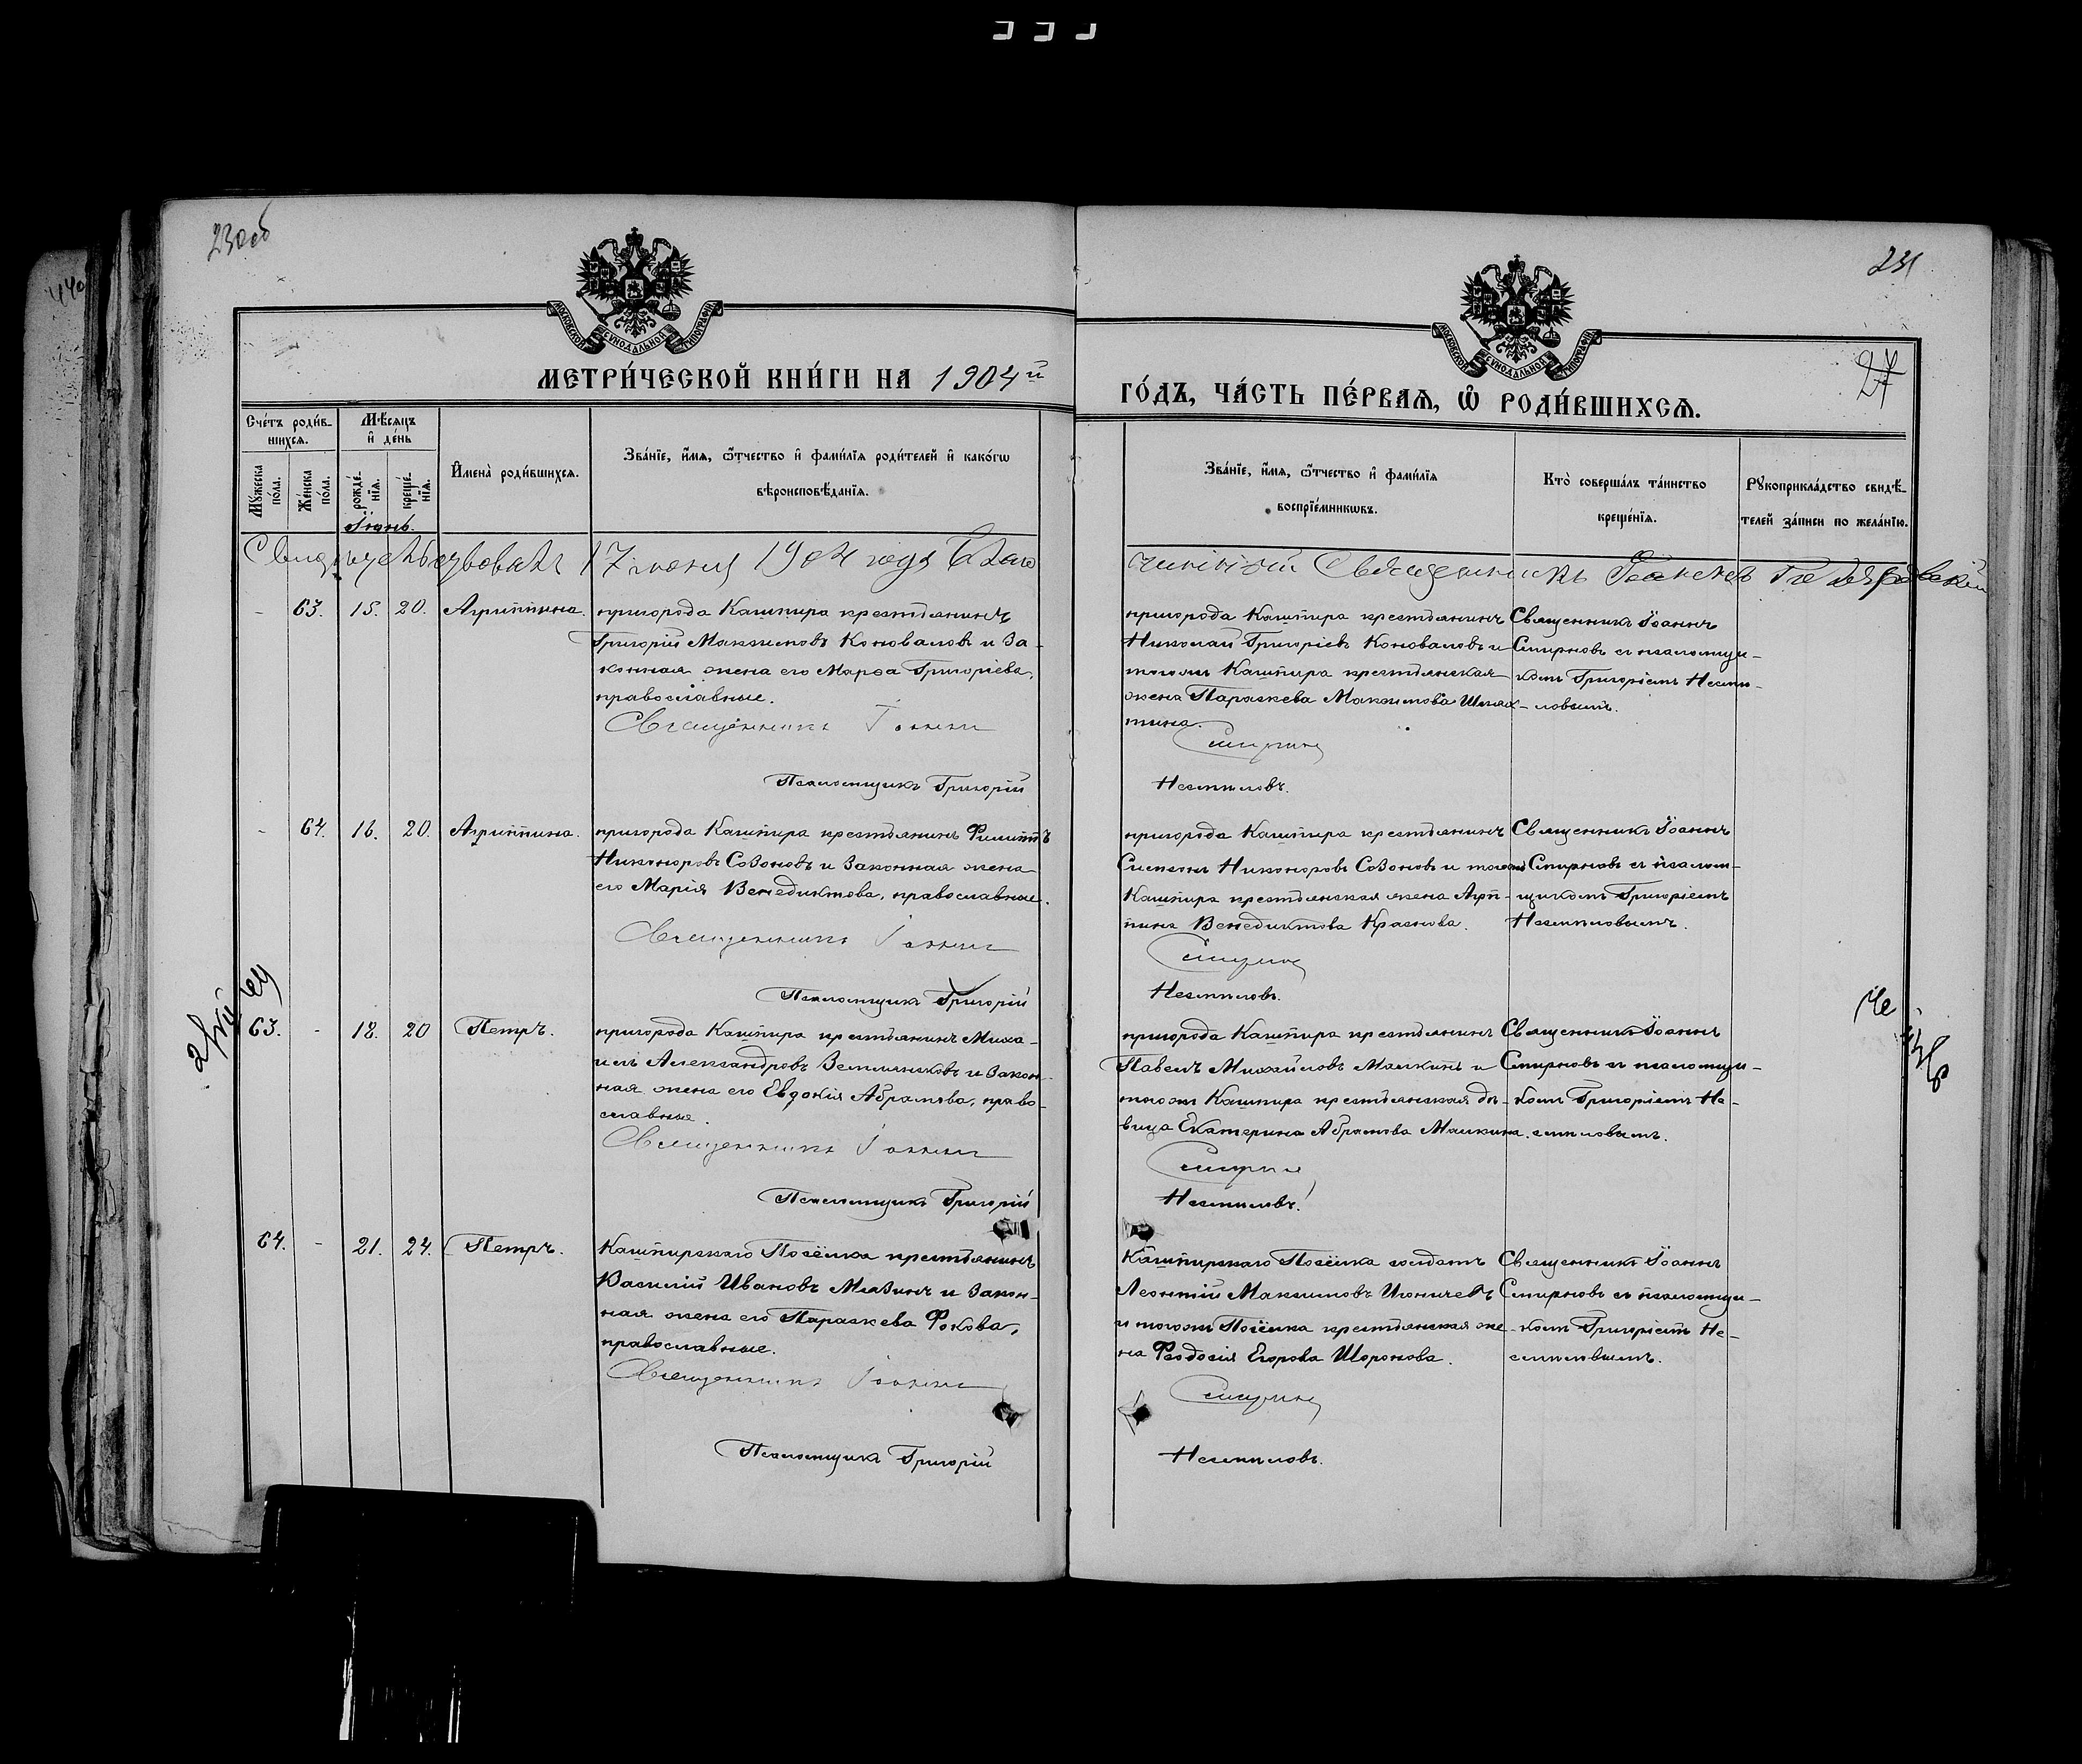 230об
231
27
МОСКОВСКОЙ СУНОДАЛЬНОЙ ТИПОГРАФИИ
МОСКОВСКОЙ СУНОДАЛЬНОЙ ТИПОГРАФИИ
МЕТРИ́ЧЕСКОЙ КНИ́ГИ НА 1904й
ГО́ДЪ, ЧА́СТЬ ПЕ́РВАѦ, Ѿ РОДИ́ВШИХСѦ.
Сче́тъ роди́в-
шихся.
Мѣ́сяцъ
и҆ де́нь
Мꙋ́жеска
по́ла.
Же́нска
по́ла.
рожде́-
нїѧ.
креще́-
нїѧ.
И҆мена̀ роди́вшихсѧ.
Зва́нїе, и҆́мѧ, ѻ҆́тчество и҆ фами́лїѧ роди́телей и҆ како́гѡ
вѣроисповѣ́данїѧ.
Зва́нїе, и҆́мѧ, ѻ҆́тчество и҆ фами́лїѧ
воспрїе́мникѡвъ.
Кто̀ соверша́лъ та́инство
креще́нїѧ.
Рꙋкоприкла́дство свидѣ́-
телей за́писи по жела́нїю.
Іюнь.
Свидѣтельствовалъ 17 июня 1904 года Благо
чинный Священникъ
- 63. 15. 20. Агриппина.
пригорода Кашпира крестьянинъ
Григорій Максимовъ Коноваловъ и За-
конная жена его Марѳа Григоріева,
православные.
Священникъ Іоаннъ
Псаломщикъ Григорій
пригорода Кашпира крестьянинъ
Николай Григоріевъ Коноваловъ и
тогожъ Кашпира крестьянская
жена Параскева Максимова
Смирновъ
Несмеловъ.
Священникъ Іоаннъ
Смирновъ съ псаломщи-
комъ Григоріемъ Несме-
ловымъ.
- 64. 16. 20. Агриппина.
пригорода Кашпира крестьянинъ Филиппъ
Никоноровъ Созоновъ и Законная жена
его Марія Венедиктова, православные.
Священникъ Іоаннъ
Псаломщикъ Григорій
пригорода Кашпира крестьянинъ
Симеонъ Никоноровъ Созоновъ и тогожъ
Кашпира крестьянская жена Агрип-
пина Венедиктова Краснова.
Смирновъ
Несмеловъ.
Священникъ Іоаннъ
Смирновъ съ псалом-
щикомъ Григоріемъ
Несмеловымъ.
63. - 18. 20 Петръ.
пригорода Кашпира крестьянинъ Миха-
илъ Александровъ Земляновъ и Закон-
ная жена его Евдокія Абрамова, право-
славные.
Священникъ Іоаннъ
Псаломщикъ Григорій
пригорода Кашпира крестьянинъ
Павелъ Михайловъ Малкинъ и
тогожъ Кашпира крестьянская дѣ-
вица Екатерина Абрамова Малкина.
Смирновъ
Несмеловъ.
Священникъ Іоаннъ
Смирновъ съ псаломщи-
комъ Григоріемъ Не-
смеловымъ.
64. - 21. 24. Петръ.
Кашпирскаго Посёлка крестьянинъ
Василій Ивановъ Мазинъ и Закон-
ная жена его Параскева Фокова,
православные.
Священникъ Іоаннъ
Псаломщикъ Григорій
Кашпирскаго Посёлка солдатъ
Леонтій Максимовъ Ионичевъ
и тогожъ Посёлка крестьянская же-
на Феодосія Егорова Шоронова.
Смирновъ
Несмеловъ.
Священникъ Іоаннъ
Смирновъ съ псаломщи-
комъ Григоріемъ Не-
смеловымъ.